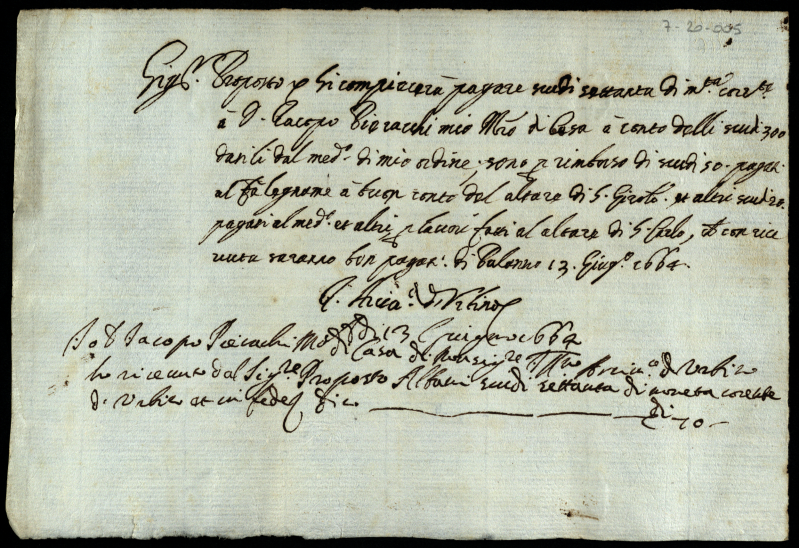 7-20-005
Sig.r Proposto si compiacerà pagare scudi settanta di m.ta corr.te
à D. Jacopo Pieracchi mio M.ro di Casa à conto delli scudi 300
datili dal med.o di mio ordine, sono p rimborso di scudi 50 pagati
al falegname à buon conto del altare di S. Girol.o et altri scudi 20
pagati al med.o et altri p lavori fatti al altare di S. Carlo, con rice
vuta saranno ben pagati. di Palazzo 13 Giug.o 1664
Arciv.o d'Urbino
Adi 13 Giugno 1664
Io D. Jacopo Pieracchi M.ro di Casa di Monsig.re Ill.mo Arciv.o d'Urbino
ho ricevuto dal Sig.re Proposto Albani scudi settanta di moneta corente
di Urbino et in fede dico 70